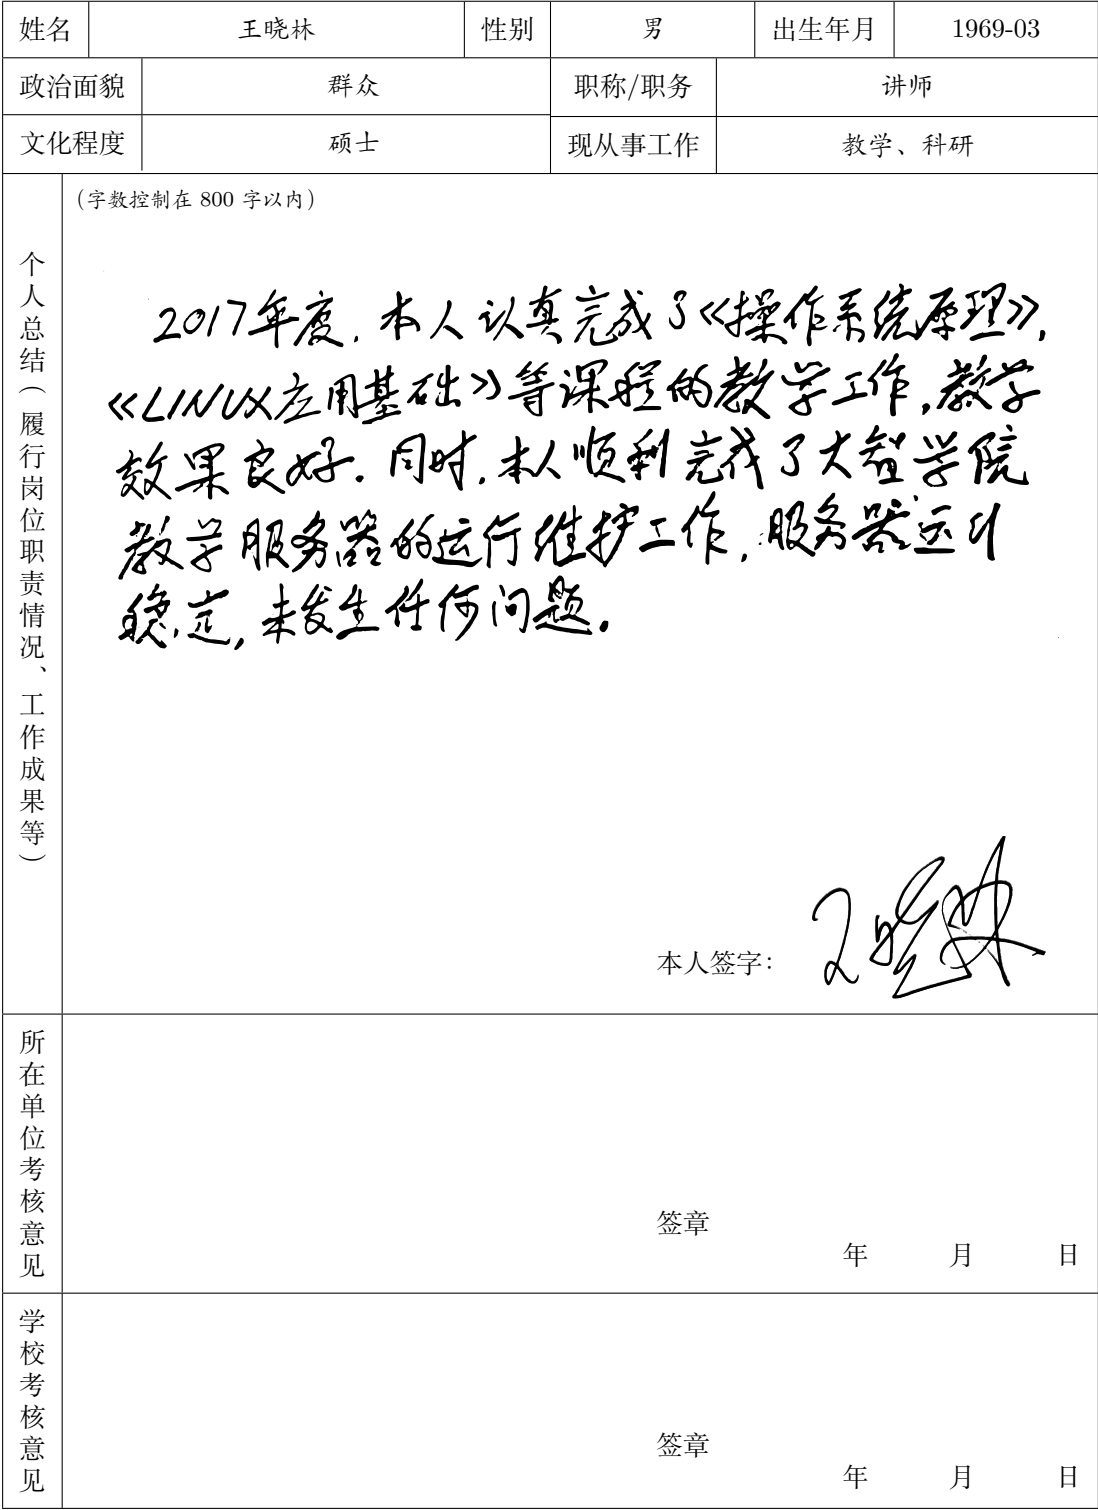 姓名 王晓林 性别 男 出生年月 1969-03
政治面貌 群众 职称/职务 讲师
文化程度 硕士 现从事工作 教学、科研
个人总结（履行岗位职责情况、工作成果等）
（字数控制在 800 字以内）
2017年度，本人认真完成了《操作系统原理》，
《LINUX应用基础》等课程的教学工作，教学
效果良好。同时，本人顺利完成了大智学院
教学服务器的运行维护工作，服务器运行
稳定，未发生任何问题。
本人签字： 王晓林
所在单位考核意见
签章
年 月 日
学校考核意见
签章
年 月 日